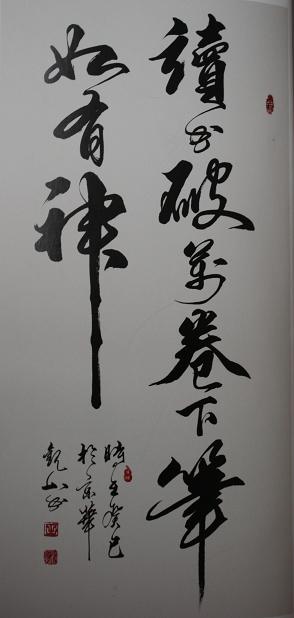 讀書破萬卷下筆
如有神
時在癸巳
於京華
觀山書